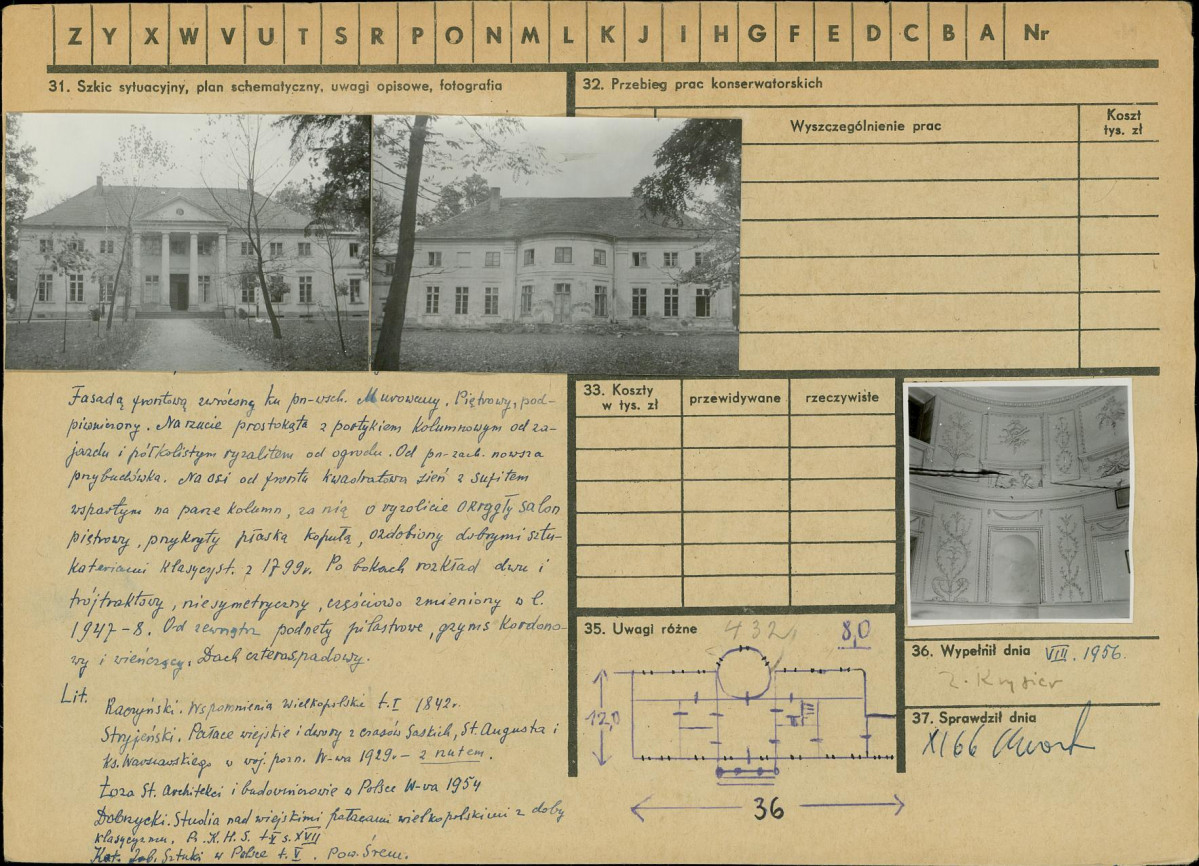 Z Y X W V U T S R P O N M L K J I H G F E D C B A Nr
31. Szkic sytuacyjny, plan schematyczny, uwagi opisowe, fotografia
32. Przebieg prac konserwatorskich
Wyszczególnienie prac
Koszt
tys. zł
Fasadą frontową zwróconą ku pn-wsch. Murowany. Piętrowy, pod-
piwniczony. Na rzucie prostokąta z portykiem kolumnowym od za-
jazdu i półkolistym ryzalitem od ogrodu. Od pn-zach. nowsza
przybudówka. Na osi od frontu kwadratowa sień z sufitem
wspartym na parze kolumn, za nią w ryzalicie okrągły salon
piętrowy, przykryty płaską kopułą, ozdobiony dobrymi sztu-
kateriami klasycyst. z 1799r. Po bokach rozkład dwu i
trójtraktowy, niesymetryczny, częściowo zmieniony w l.
1947-8. Od zewnątrz podziały pilastrowe, gzyms kordono-
wy i wieńczący. Dach czterospadowy.
Lit.
Raczyński. Wspomnienia wielkopolski t.I 1842r.
Stryjeński. Pałace wiejskie i dwory z czasów Saskich, St. Augusta i
Ks. Warszawskiego w woj. pozn. W-wa 1929r. - z rzutem.
Łoza St. Architekci i budowniczowie w Polsce W-wa 1954
Dobrzycki. Studia nad wiejskimi pałacami wielkopolskimi z doby
klasycyzmu. P.K.H.S. t.V s.XVII
Kat. Zab. Sztuki w Polsce t.V. Pow. Śrem.
33. Koszty
w tys. zł
przewidywane
rzeczywiste
35. Uwagi różne
432
8,0
12,0
36
36. Wypełnił dnia VIII. 1956.
37. Sprawdził dnia
XI 66